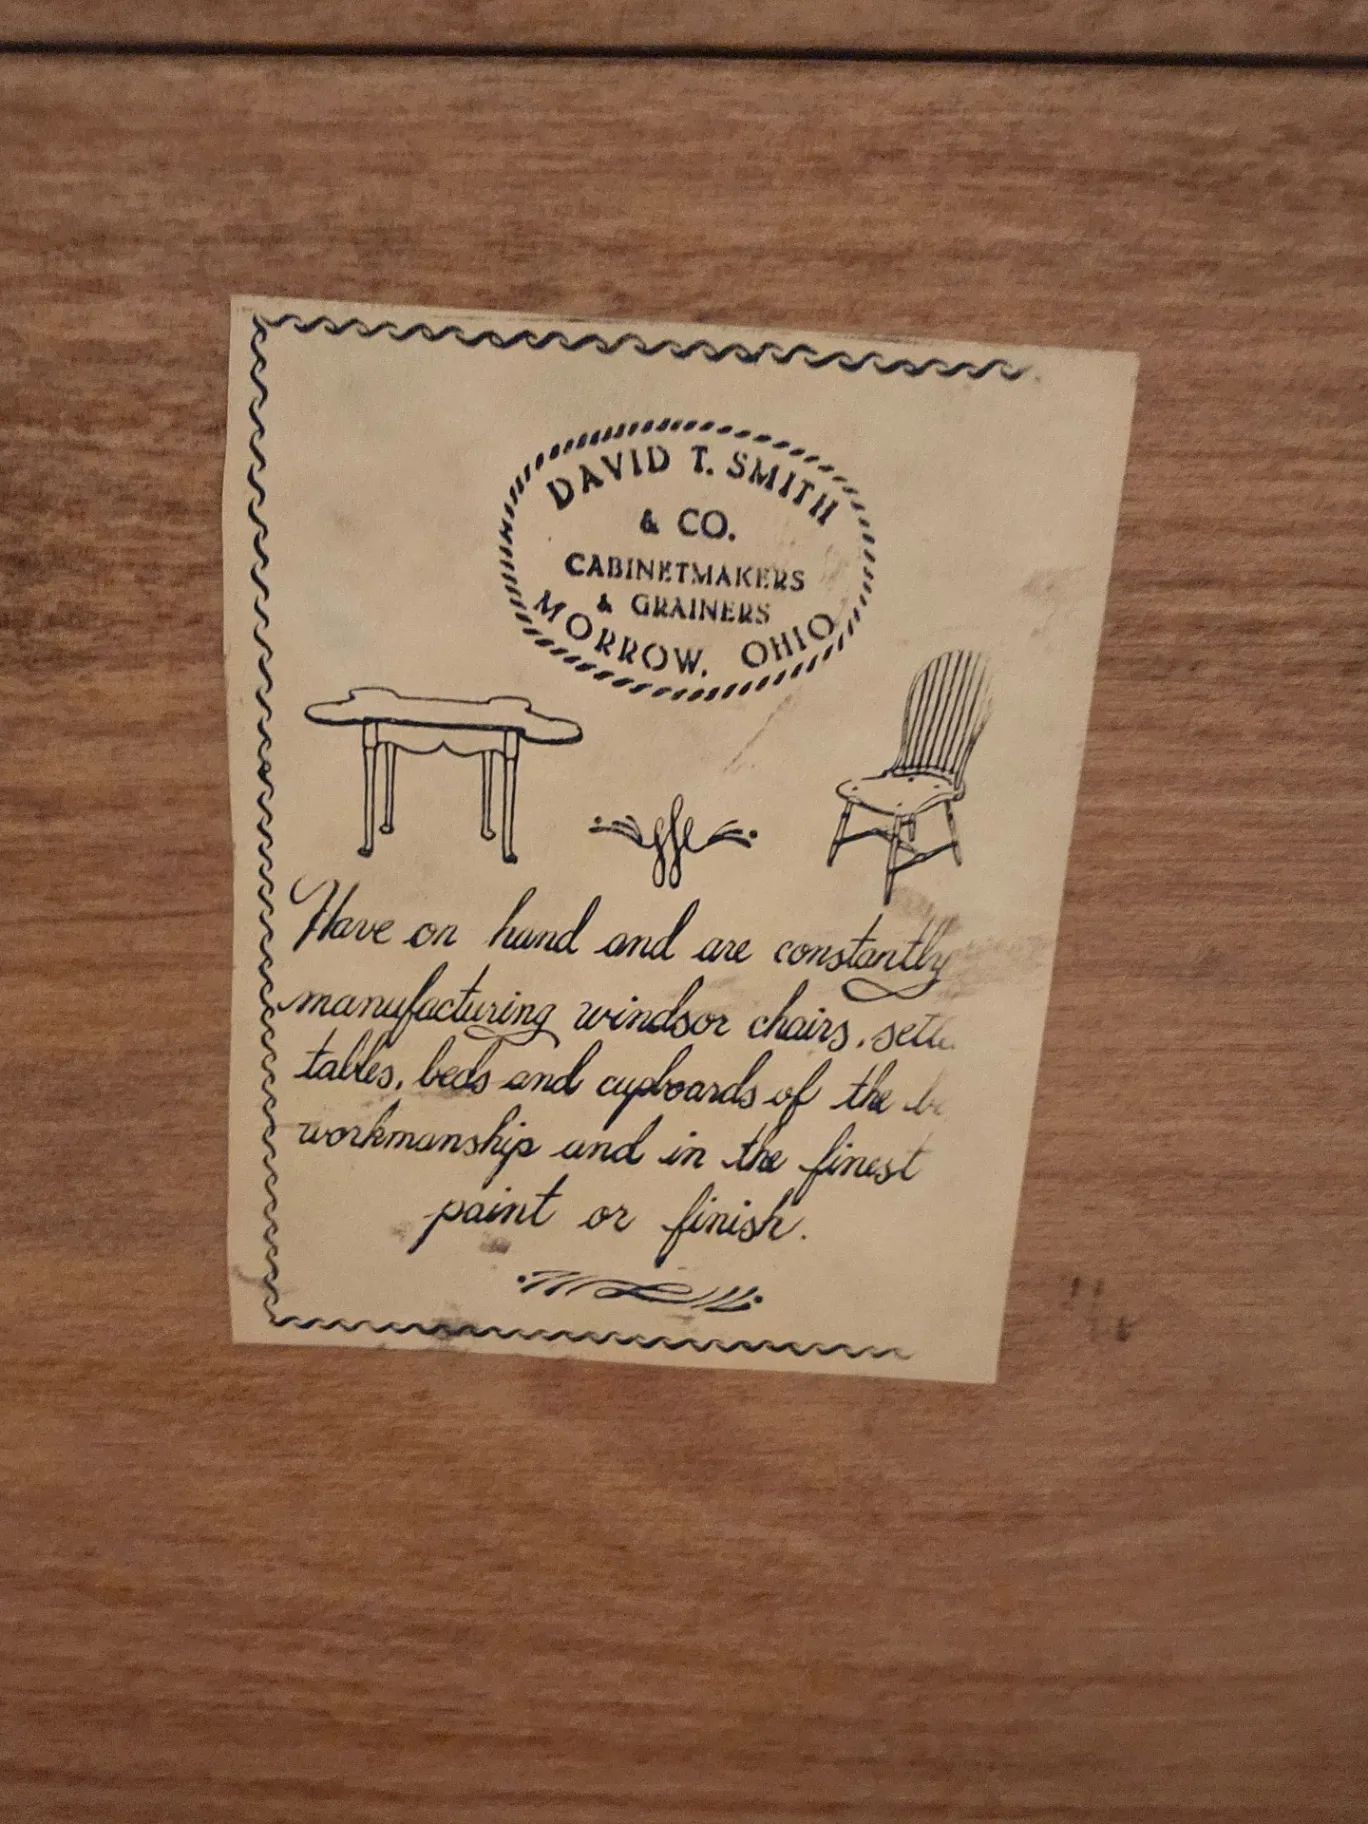 DAVID T. SMITH
& CO.
CABINETMAKERS
& GRAINERS
MORROW, OHIO
Have on hand and are constantly
manufacturing windsor chairs, sett
tables, beds and cupboards of the b
workmanship and in the finest
paint or finish.